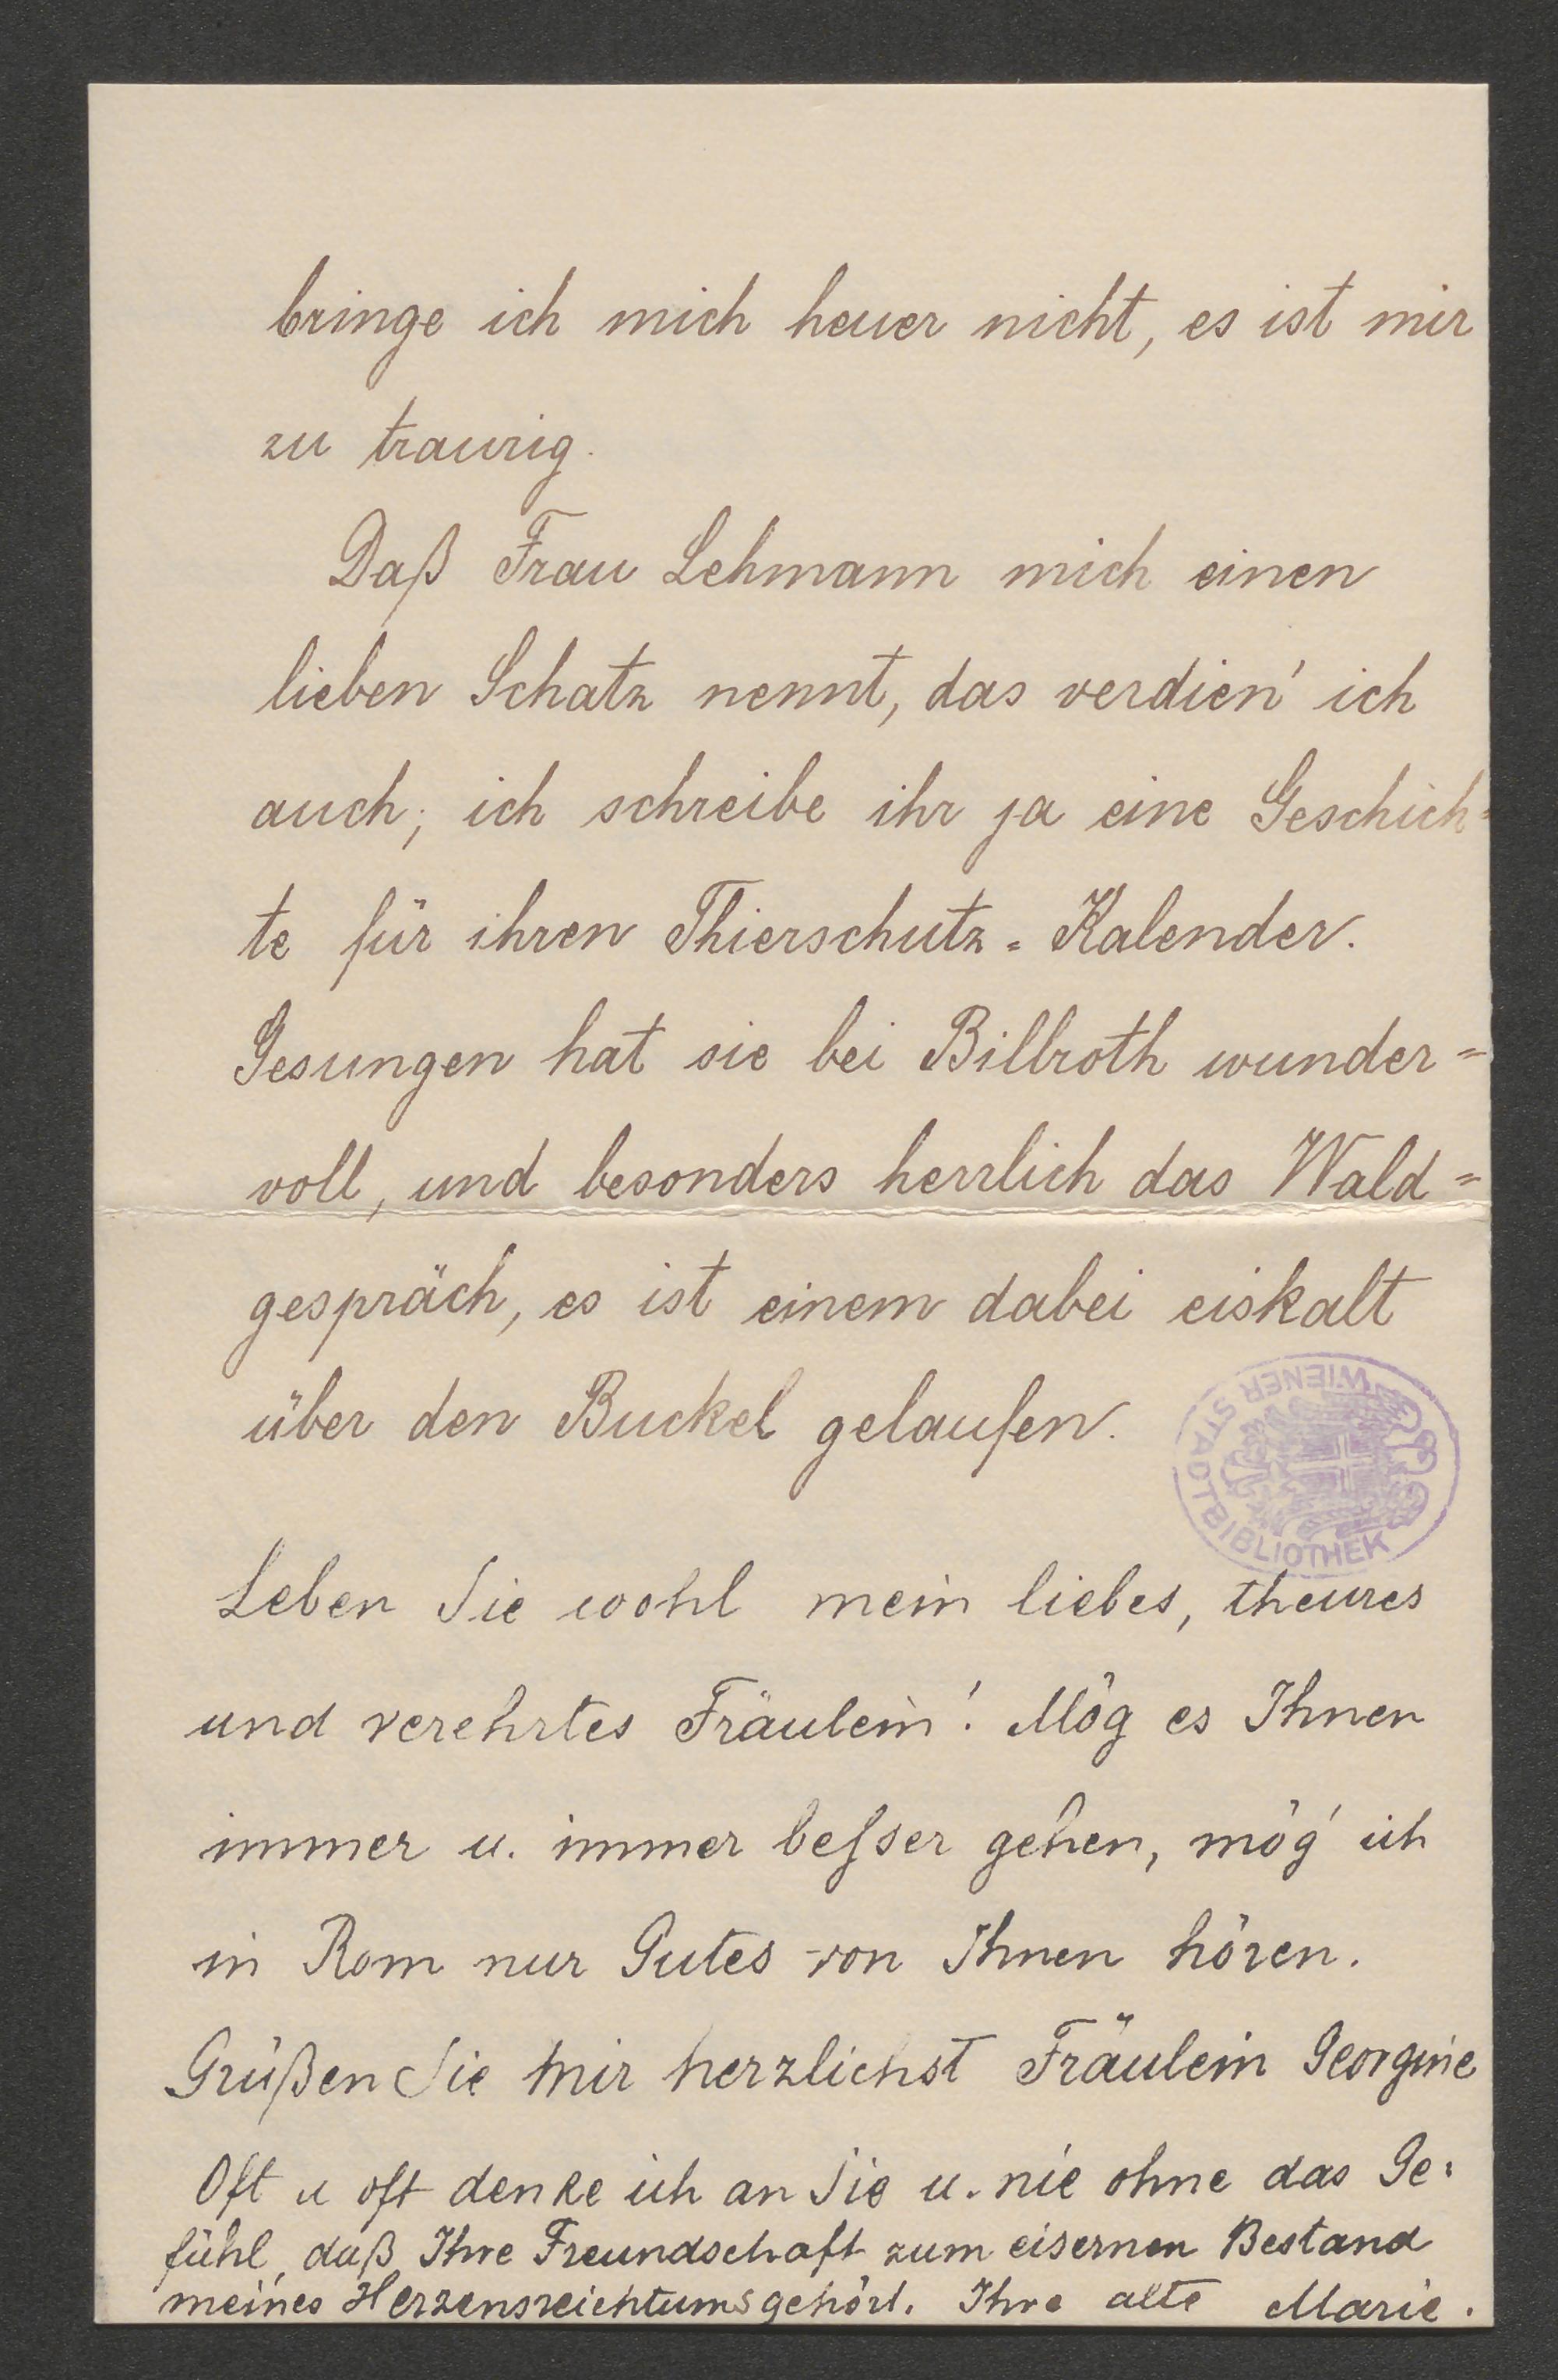 bringe ich mich heuer nicht, es ist mir
zu traurig.
Daß Frau Lehmann mich einen
lieben Schatz nennt, das verdien' ich
auch; ich schreibe ihr ja eine Geschich=
te für ihren Thierschutz=Kalender.
Gesungen hat sie bei Billroth wunder=
voll, und besonders herrlich das Wald=
gespräch, es ist einem dabei eiskalt
über den Buckel gelaufen.
WIENER STADTBIBLIOTHEK
Leben Sie wohl mein liebes, theures
und verehrtes Fräulein! Mög es Ihnen
immer u. immer besser gehen, mög' ich
in Rom nur Gutes von Ihnen hören.
Grüßen Sie mir herzlichst Fräulein Georgine
Oft u oft denke ich an Sie u. nie ohne das Ge=
fühl, daß Ihre Freundschaft zum eisernen Bestand
meines Herzensreichtums gehört. Ihre alte Marie.